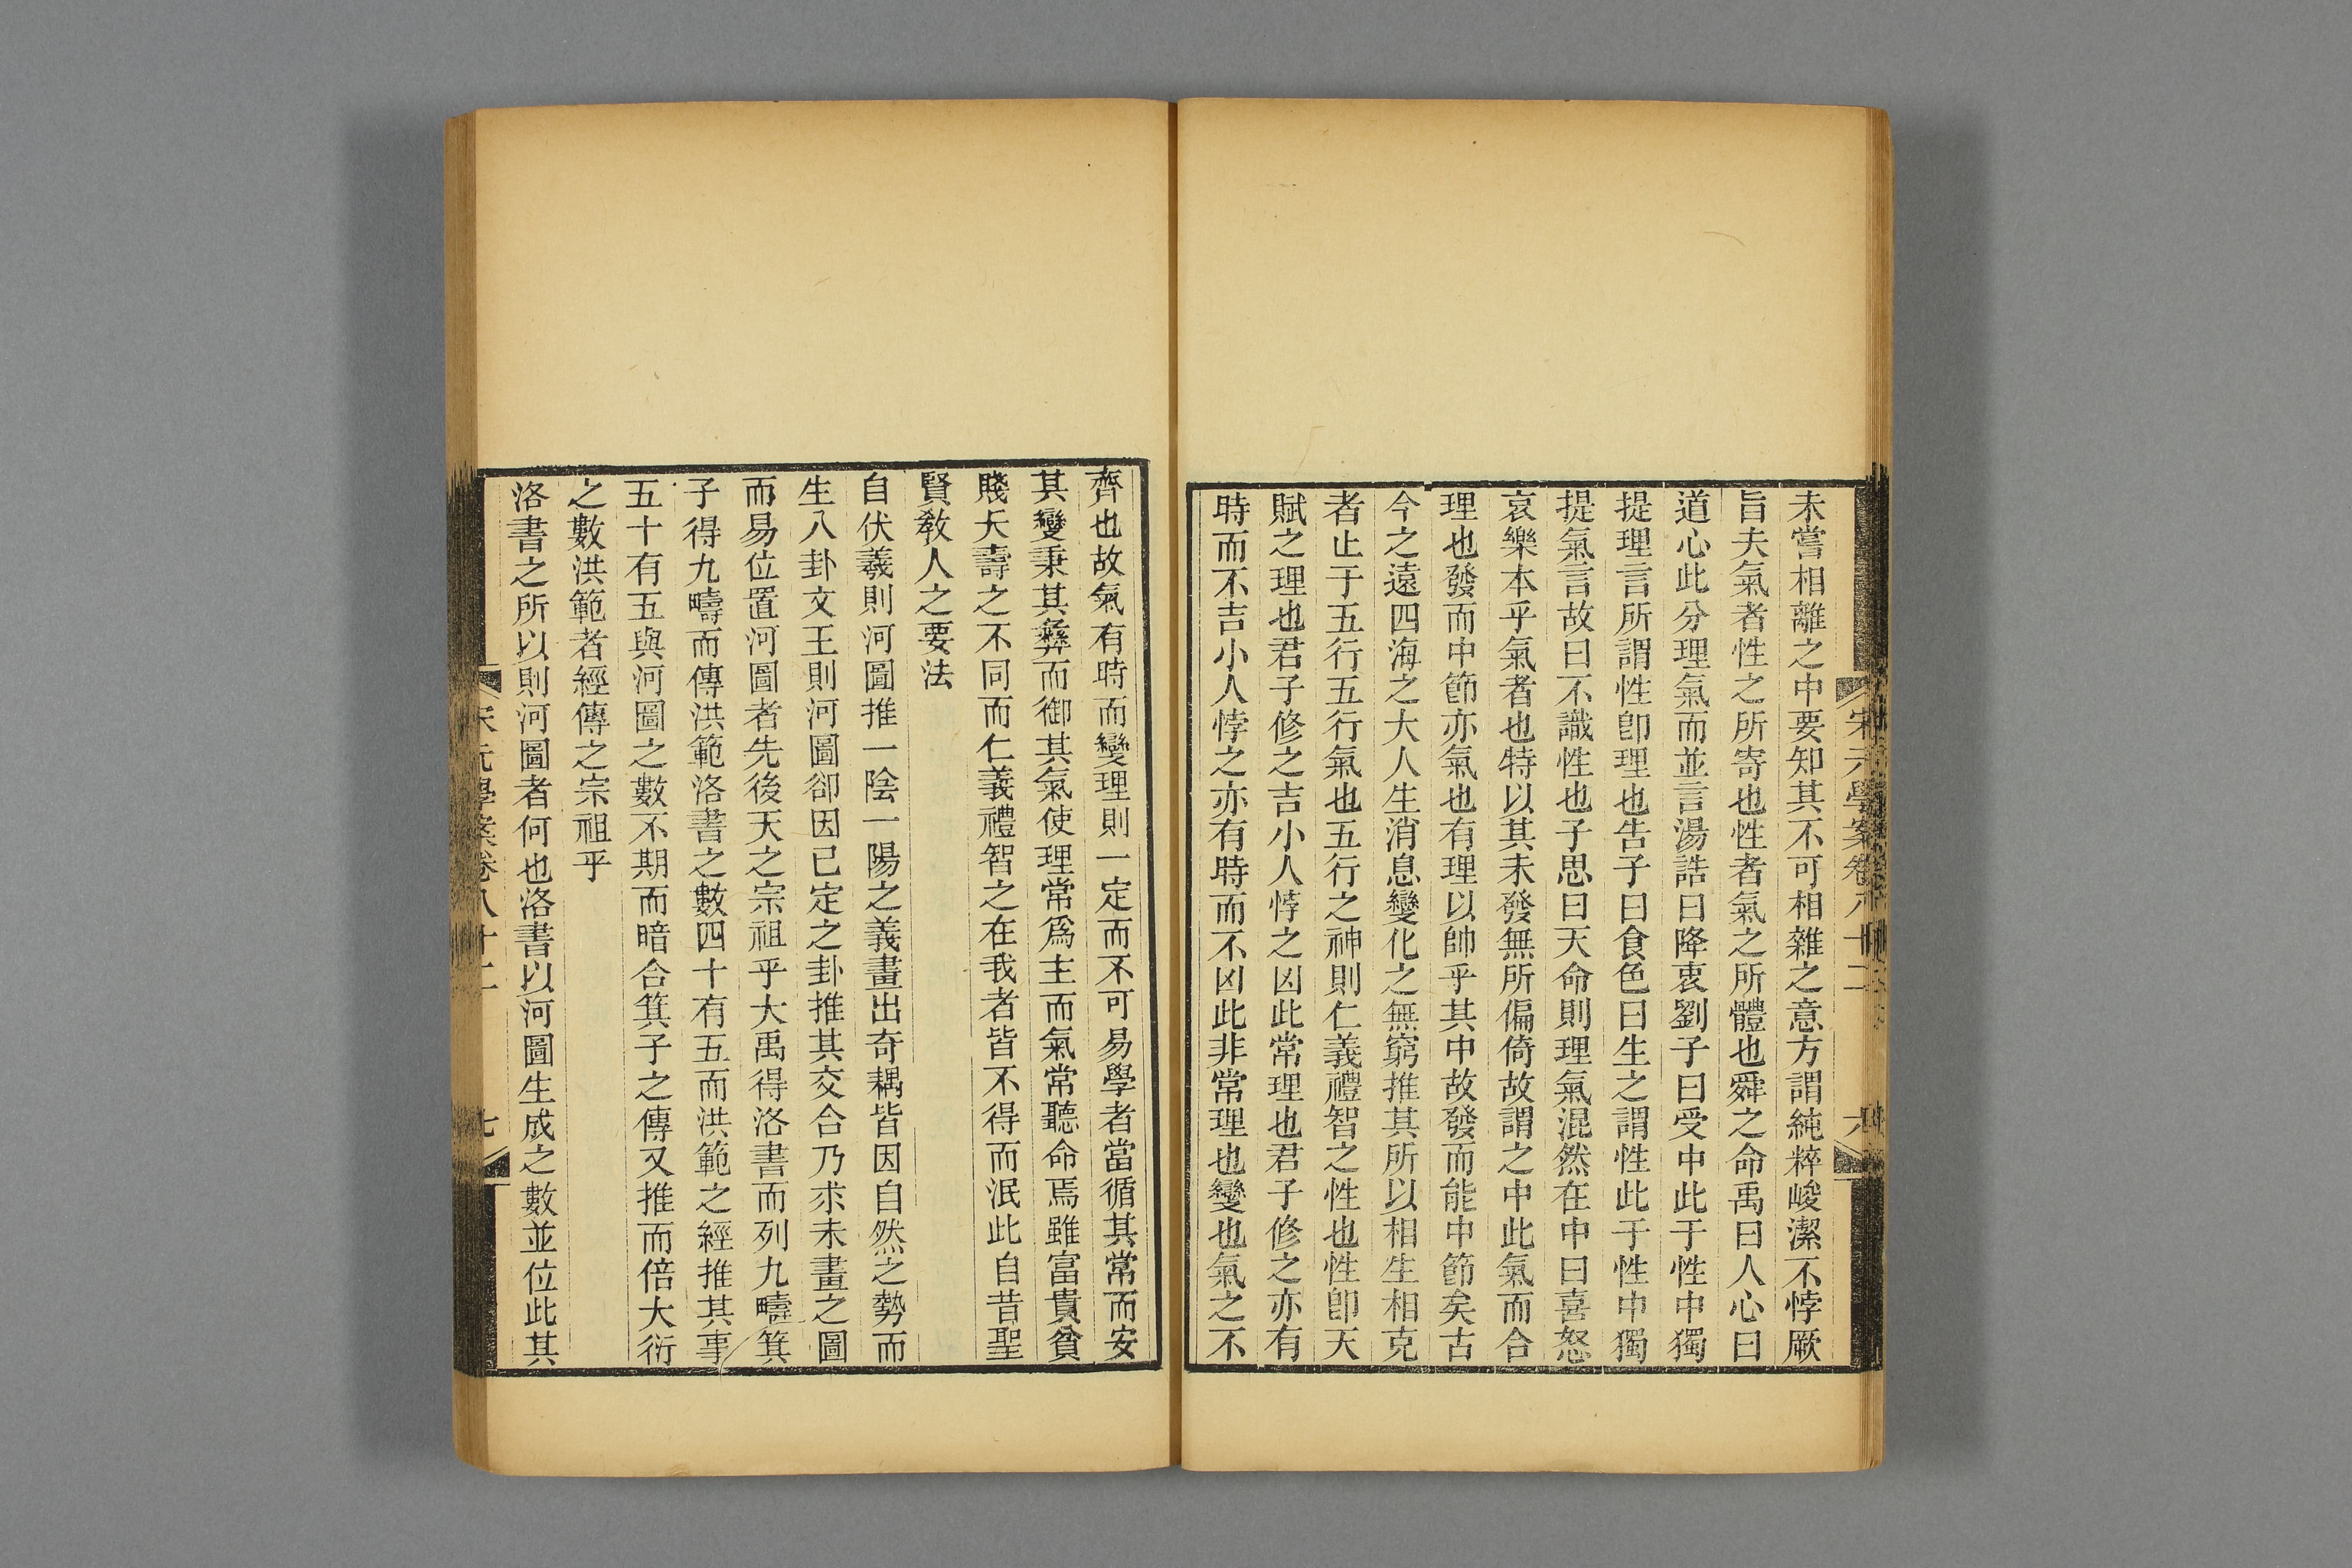 宋元學案卷八十二
六
未嘗相離之中要知其不可相雜之意方謂純粹峻潔不悖厥
旨夫氣者性之所寄也性者氣之所體也舜之命禹曰人心曰
道心此分理氣而並言湯誥曰降衷劉子曰受中此于性中獨
提理言所謂性卽理也告子曰食色曰生之謂性此于性中獨
提氣言故曰不識性也子思曰天命則理氣混然在中曰喜怒
哀樂本乎氣者也特以其未發無所偏倚故謂之中此氣而合
理也發而中節亦氣也有理以帥乎其中故發而能中節矣古
今之遠四海之大人生消息變化之無窮推其所以相生相克
者止于五行五行氣也五行之神則仁義禮智之性也性卽天
賦之理也君子修之吉小人悖之凶此常理也君子修之亦有
時而不吉小人悖之亦有時而不凶此非常理也變也氣之不
齊也故氣有時而變理則一定而不可易學者當循其常而安
其變秉其彝而御其氣使理常爲主而氣常聽命焉雖富貴貧
賤夭壽之不同而仁義禮智之在我者皆不得而泯此自昔聖
賢敎人之要法
自伏羲則河圖推一陰一陽之義畫出奇耦皆因自然之勢而
生八卦文王則河圖卻因已定之卦推其交合乃求未畫之圖
而易位置河圖者先後天之宗祖乎大禹得洛書而列九疇箕
子得九疇而傳洪範洛書之數四十有五而洪範之經推其事
五十有五與河圖之數不期而暗合箕子之傳又推而倍大衍
之數洪範者經傳之宗祖乎
洛書之所以則河圖者何也洛書以河圖生成之數並位此其
宋元學案卷八十二
七